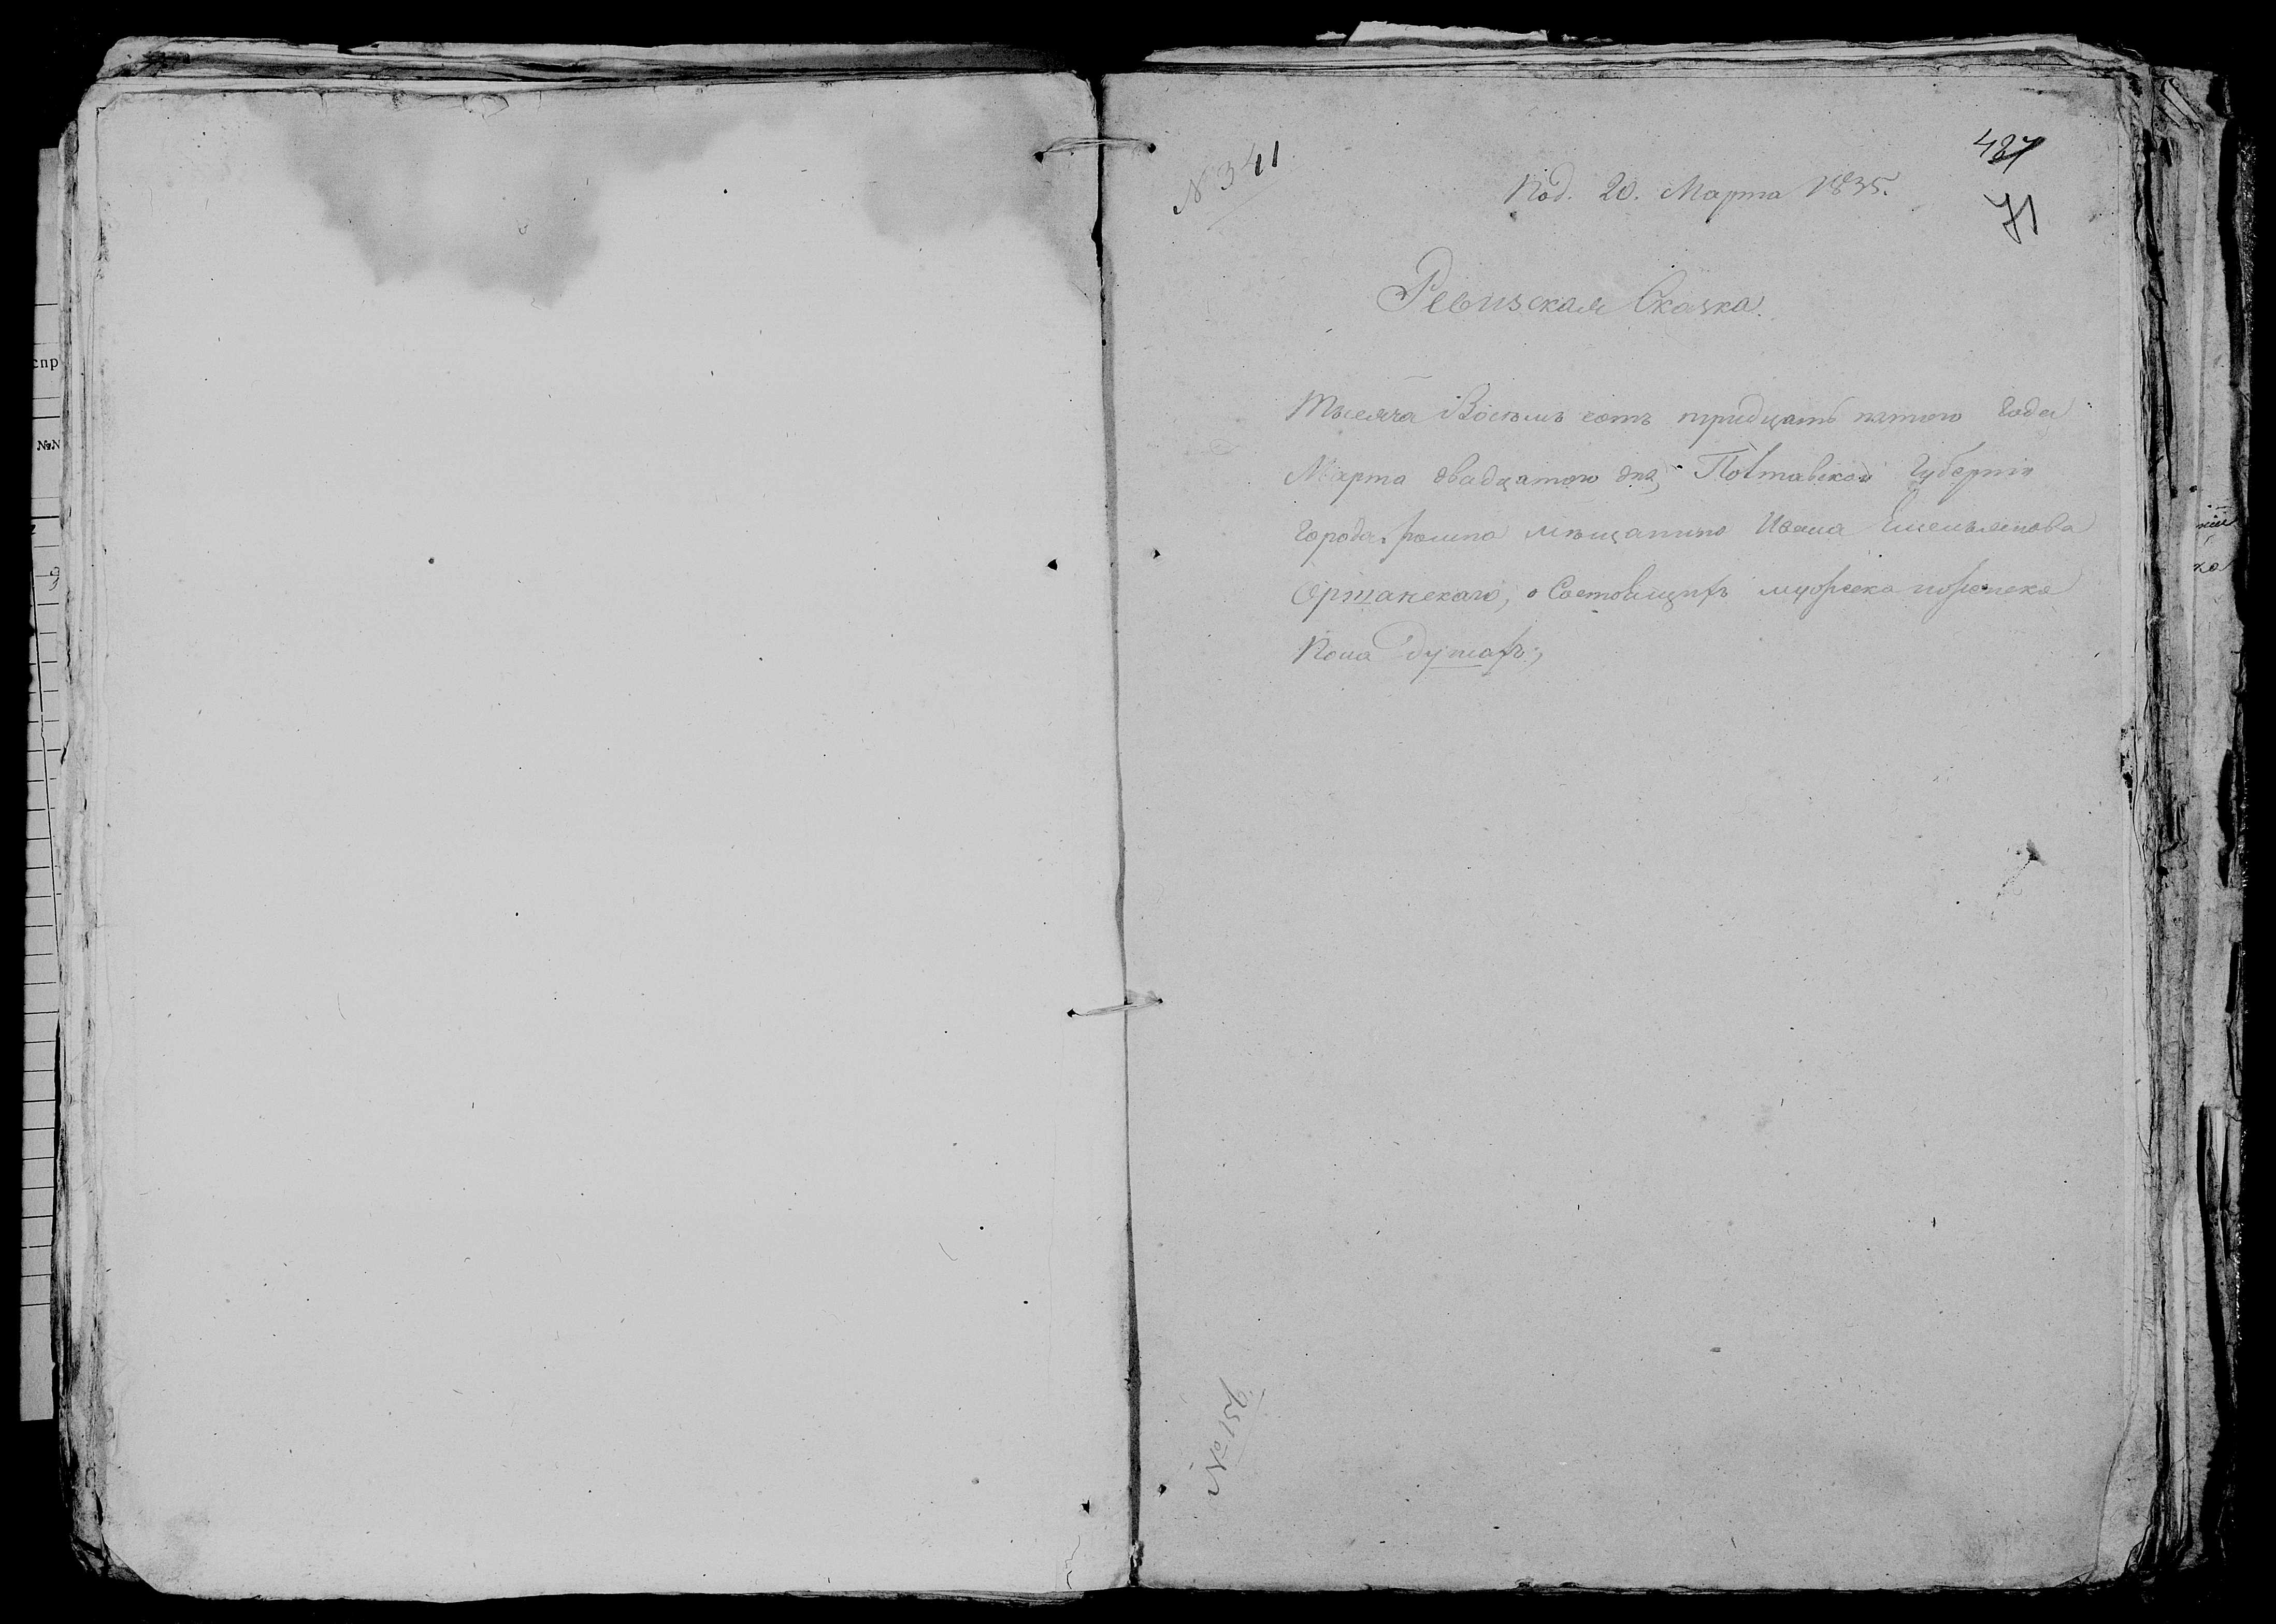 № 341
487
Под. 20. Марта 1835.
71
Ревизская Сказка.
Тысяча Восемь сотъ тридцать пятого Года
Марта двадцатого дня, Полтавской Губерніи
Города Ромна мѣщанина Ивана Емельянова
Оршанскаго, о Состоящихъ мужеска и женска
Пола душахъ,
№ 156.
спр
№№